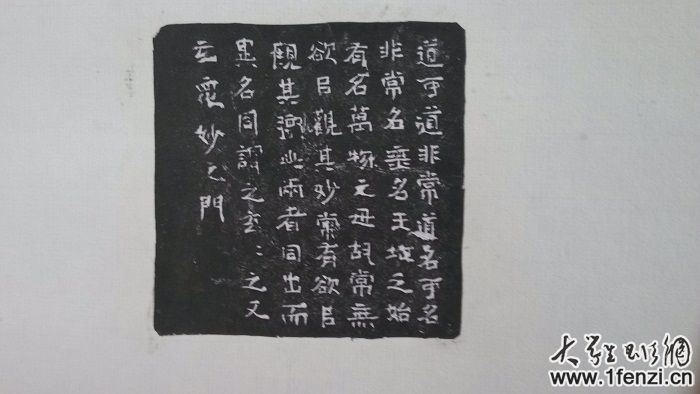 道可道非常道名可名
非常名無名天地之始
有名萬物之母故常無
欲㠯觀其妙常有欲㠯
觀其徼此兩者同出而
異名同謂之玄〻之又
玄眾妙之門
www.1fenzi.cn